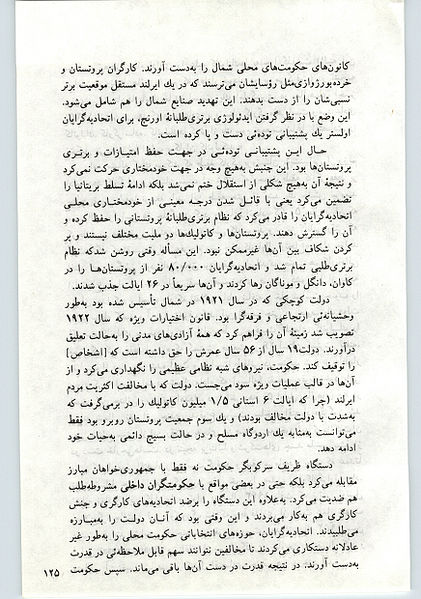 کانون‌های حکومت‌های محلی شمال را به‌دست آورند. کارگران پروتستان و
خرده‌بورژوازی‌مثل رؤسایشان می‌ترسند که در یك ایرلند مستقل موقعیت برتر
نسبی‌شان را از دست بدهند. این تهدید صنایع شمال را هم شامل می‌شود.
این وضع با در نظر گرفتن ایدئولوژی برتری‌طلبانهٔ اورنج، برای اتحادیه‌گرایان
اولستر یك پشتیبانی توده‌ئی دست و پا کرده است.
حال ایـن پشتیبانـی توده‌ئـی در جهـت حفظ امتیـازات و برتـری
پروتستان‌ها بود. این جنبش به‌هیچ وجه در جهت خودمختاری حرکت نمی‌کرد
و نتیجهٔ آن به‌هیچ شکلی از استقلال ختم نمی‌شد بلکه ادامهٔ تسلط بریتانیا را
تضمین می‌کرد یعنی با قائـل شـدن درجـه معینی از خودمختـاری محلـی
اتحادیه‌گرایان را قادر می‌کرد که نظام برتری‌طلبانهٔ پروتستانی را حفظ کرده و
آن را گسترش دهند. پروتستان‌ها و کاتولیك‌ها دو ملیت مختلف نیستند و پر
کردن شکاف بین آن‌ها غیرممکن نبود. این مسأله وقتی روشن شدکه نظام
برتری‌طلبی تمام شد و اتحادیه‌گرایان ۸۰/۰۰۰ نفر از پروتستان‌هـا را در
کاوان، دانگل و موناگان رها کردند و آن‌ها سریعاً در ۲۶ ایالت جذب شدند.
دولت کوچکی که در سال ۱۹۲۱ در شمال تأسیس شده بود به‌طور
وحشیانه‌ئی ارتجاعی و فرقه‌گرا بود. قانون اختیارات ویژه که سال ۱۹۲۲
تصویب شد زمینهٔ آن را فراهم کرد که همهٔ آزادی‌های مدنی را به‌حالت تعلیق
درآورند. دولت۱۹ سال از ۵۶ سال عمرش را حق داشته است که [اشخاص]
را توقیف کند. حکومت، نیروهای شبه نظامی عظیمی را نگهداری می‌کرد و از
آن‌ها در قالب عملیات ویژه سود می‌جست. دولت که با مخالفت اکثریت مردم
ایرلند (چرا که ایالت ۶ استانی ۱/۵ میلیون کاتولیك را در برمی‌گرفت که
به‌شدت با دولت مخالف بودند) و یك سوم جمعیت پروتستان روبرو بود فقط
می‌توانست به‌مثابه یك اردوگاه مسلح و در حالت بسیج دائمی به‌حیات خود
ادامه دهد.
دستگاه ظریف سرکوبگر حکومت نه فقط با جمهوری‌خواهان مبارز
مقابله می‌کرد بلکه حتی در بعضی مواقع با حکومتگران داخلی مشروطه‌طلب
هم ضدیت می‌کرد. به‌علاوه این دستگاه را برضد اتحادیه‌های کارگری و جنش
کارگری هم به‌کار می‌بردند و این وقتی بود که آنـان دولـت را به‌مبـارزه
می‌طلبیدند. اتحادیه‌گرایان، حوزه‌های انتخاباتی حکومت محلی را به‌طور غیر
عادلانه دستکاری می‌کردند تا مخالفین نتوانند سهم قابل ملاحظه‌ئی در قدرت
به‌دست آورند. در نتیجه قدرت در دست آن‌ها باقی می‌ماند. سپس حکومت
۱۲۵